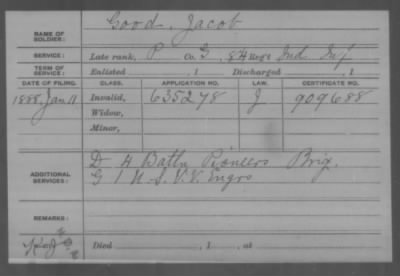 Good, Jacob
NAME OF SOLDIER:
SERVICE: Late rank, P Co. G, 84 Reg't Ind. Inf
TERM OF SERVICE: Enlisted , 1 Discharged , 1
DATE OF FILING. CLASS. APPLICATION NO. LAW. CERTIFICATE NO.
1888, Jan 11 Invalid, 635278 J 909688
Widow,
Minor,
ADDITIONAL SERVICES: D 4 Battn Pioneers Brig.
G 1 U.S. V.V. Engrs
REMARKS:
Died , 1 , at